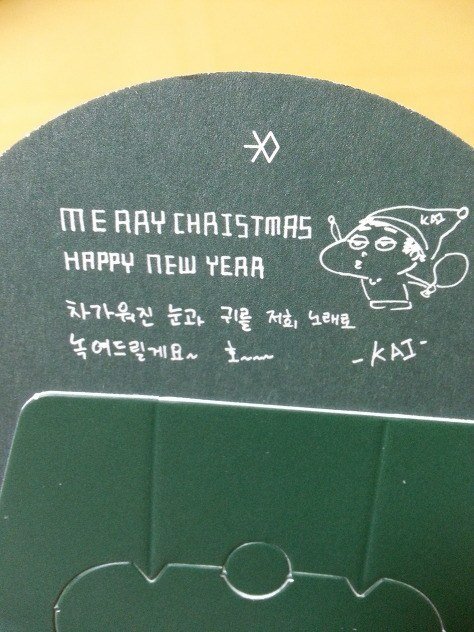 EXO
MERRY CHRISTMAS
HAPPY NEW YEAR
KAI
차가워진 눈과 귀를 저희 노래로
녹여드릴게요~ 호~~~
-KAI-